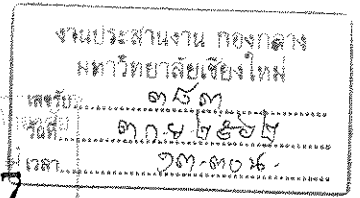 งานประสานงาน กองกลาง
มหาวิทยาลัยเชียงใหม่
เลขรับ ๓๘๓
วันที่ ๓ ก.ย. ๒๕๖๒
เวลา ๑๓.๓๐ น.